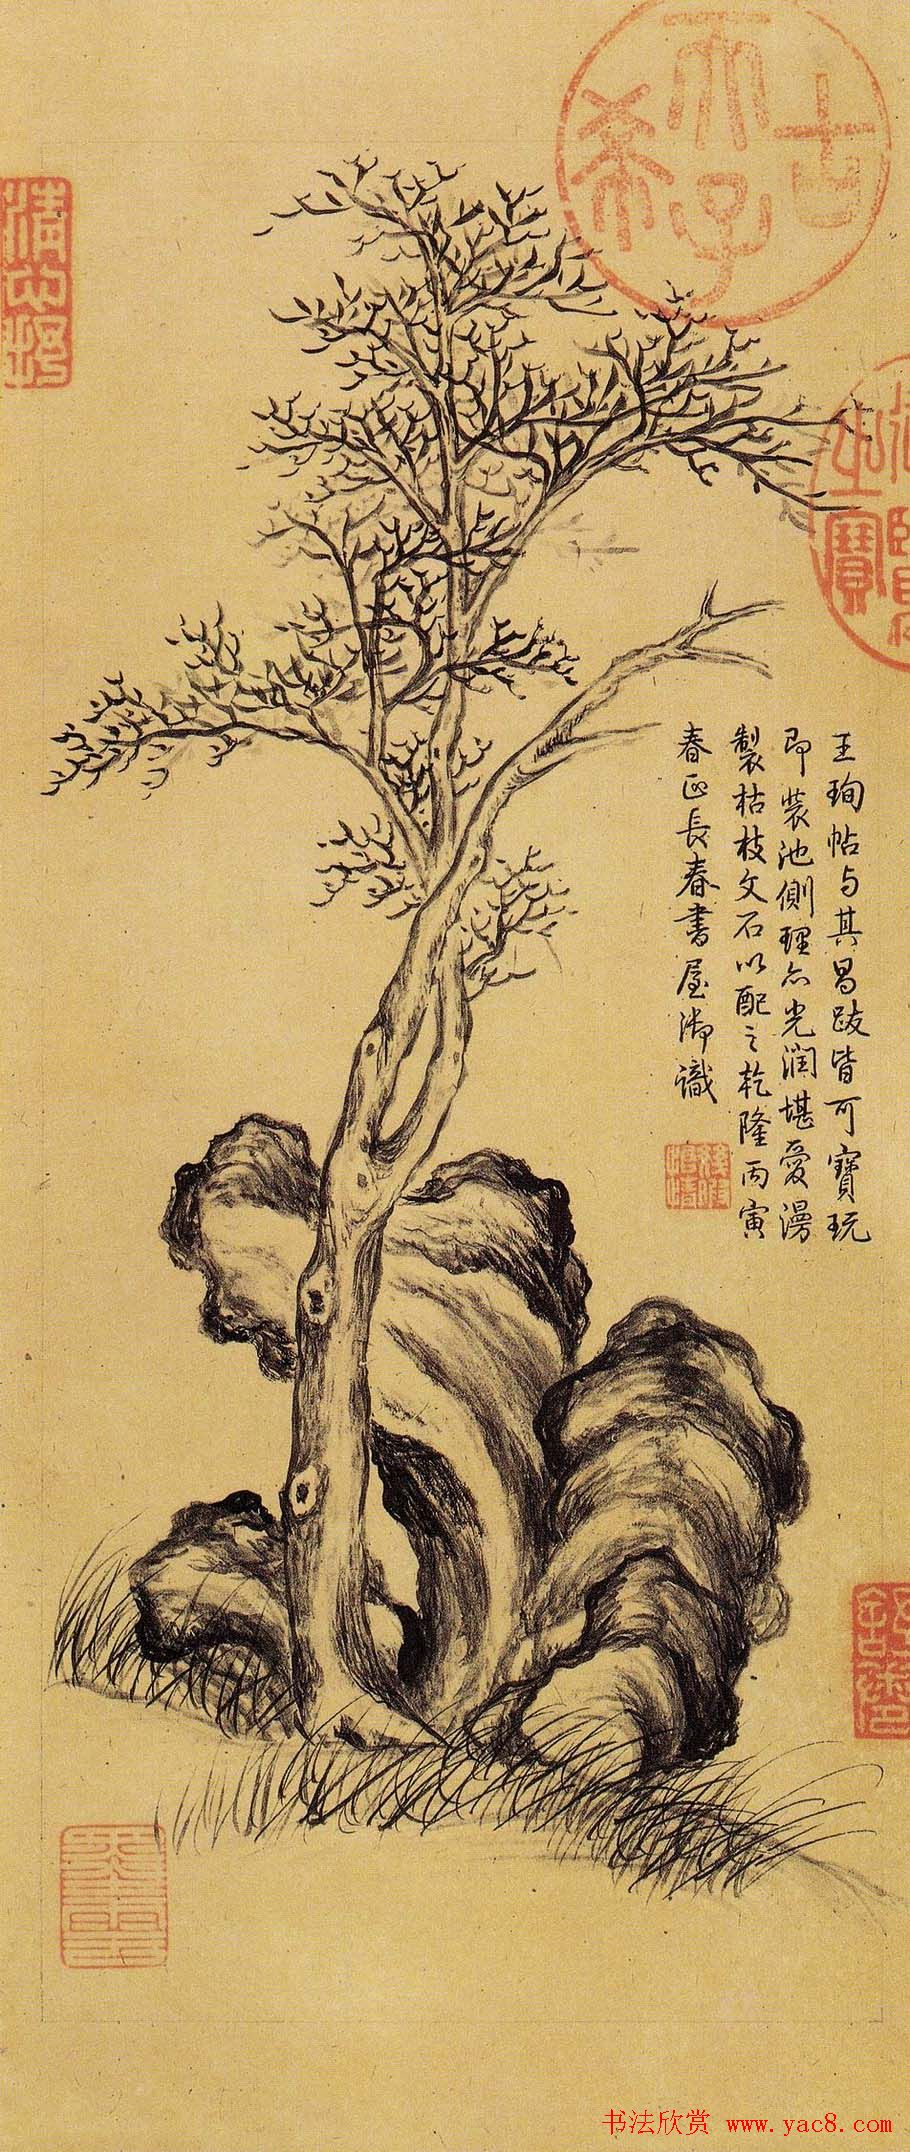 王珣帖与其昌跋皆可寶玩
即装池側理亦光潤堪愛漫
製枯枝文石以配之乾隆丙寅
春正長春書屋御識
古希天子
之寶
书法欣赏 www.yac8.com